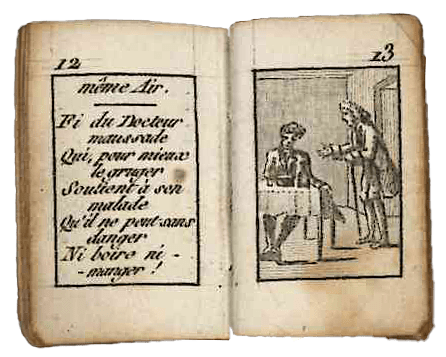 12
même Air.
Fi du Docteur
maussade
Qui, pour mieux
le gruger
Soutient à son
malade
Qu'il ne peut sans
danger
Ni boire ni -
- manger !
13